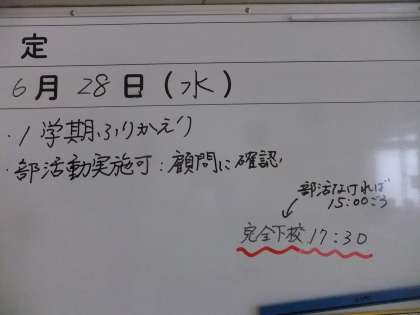 定
6月28日(水)
・1学期ふりかえり
・部活動実施可:顧問に確認
部活なければ
15:00ごろ
完全下校 17:30